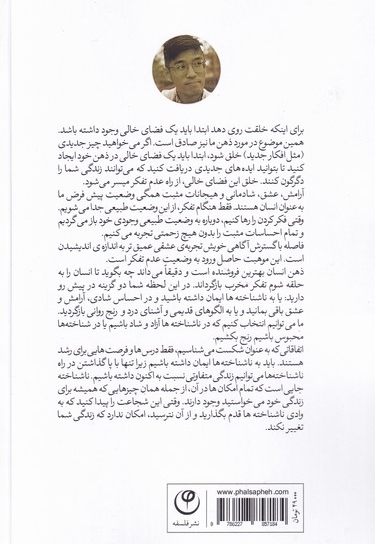 برای اینکه خلقت روی دهد ابتدا باید یک فضای خالی وجود داشته باشد.
همین موضوع در مورد ذهن ما نیز صادق است. اگر می‌خواهید چیز جدیدی
(مثل افکار جدید) خلق شود، ابتدا باید یک فضای خالی در ذهن خود ایجاد
کنید تا بتوانید ایده‌های جدیدی دریافت کنید که می‌توانند زندگی شما را
دگرگون کنند. خلق این فضای خالی، از راه عدم تفکر میسر می‌شود.
آرامش، عشق، شادمانی و هیجانات مثبت همگی وضعیت پیش فرض ما
به عنوان انسان هستند. فقط هنگام تفکر، از این وضعیت طبیعی جدا می‌شویم.
وقتی فکر کردن را رها کنیم، دوباره به وضعیت طبیعی وجودی خود باز می‌گردیم
و تمام احساسات مثبت را بدون هیچ زحمتی تجربه می‌کنیم.
فاصله با گسترش آگاهی خویش تجربه‌ی عشقی عمیق تر به اندازه‌ی اندیشیدن
است. این موهبت حاصل ورود به وضعیت عدم تفکر است.
ذهن انسان بهترین فروشنده است و دقیقا می‌داند چه بگوید تا انسان را به
حلقه شوم تفکر مخرب بازگرداند. در این لحظه شما دو گزینه در پیش رو
دارید: یا به ناشناخته ها ایمان داشته باشید و در احساس شادی، آرامش و
عشق باقی بمانید و یا به الگوهای قدیمی و آشنای درد و رنج روانی بازگردید.
ما می توانیم انتخاب کنیم که در ناشناخته ها آزاد و شاد باشیم یا در شناخته‌ها
محبوس باشیم رنج بکشیم.
اتفاقاتی که به عنوان شکست می‌شناسیم، فقط درس‌ها و فرصت هایی برای رشد
هستند. باید به ناشناخته‌ها ایمان داشته باشیم زیرا تنها با پا گذاشتن در راه
ناشناخته‌ها می‌توانیم زندگی متفاوتی نسبت به اکنون داشته باشیم. ناشناخته
جایی است که تمام امکان ها در آن، از جمله همان چیزهایی که همیشه برای
زندگی خود می‌خواستید وجود دارند. وقتی این شجاعت را پیدا کنید که به
وادی ناشناخته ها قدم بگذارید و از آن نترسید، امکان ندارد که زندگی شما
تغییر نکند.
www.phalsapheh.com
نشر فلسفه
تومان